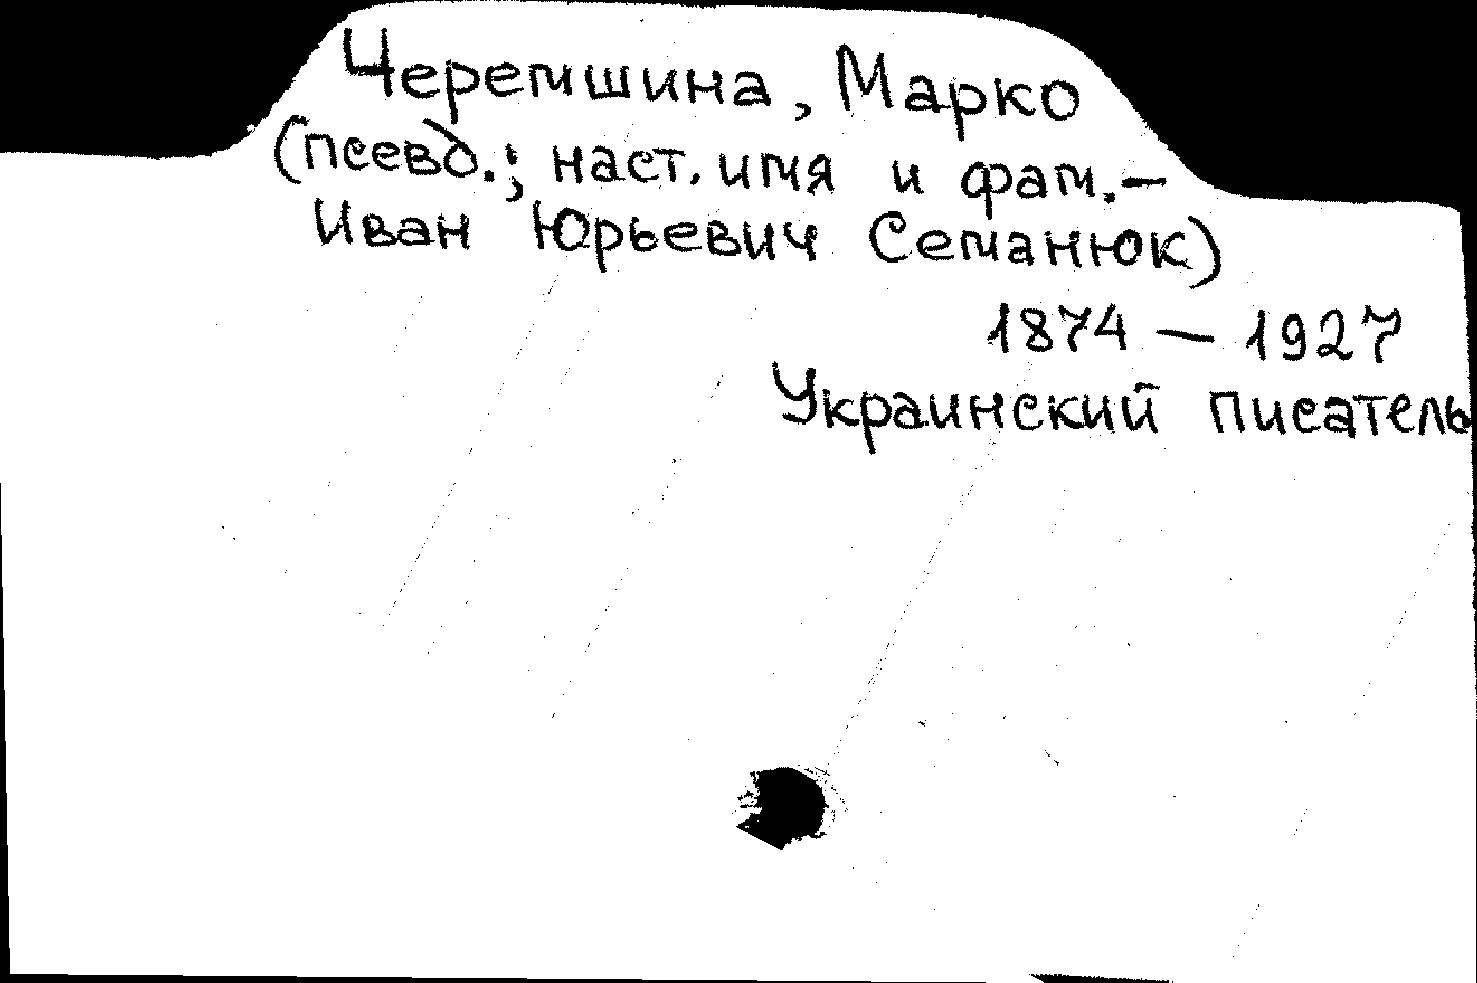 Черемшина, Марко
(псевд.; наст. имя и фам. –
Иван Юрьевич Семанюк)
1874 – 1927
Украинский писатель